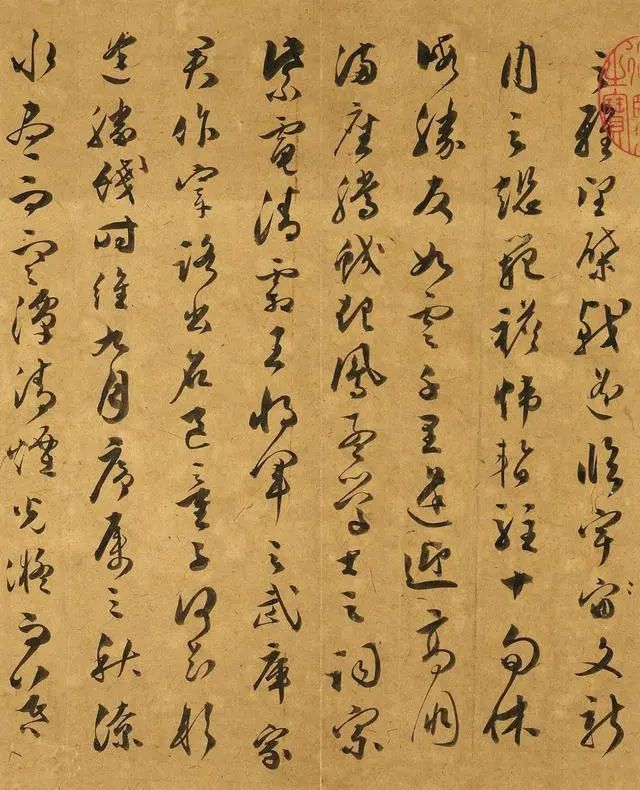 之雅望棨戟遙臨宇宙文新
州之懿範襜帷暫駐十旬休
暇勝友如雲千里逢迎高朋
滿座騰蛟起鳳孟學士之詞宗
紫電清霜王將軍之武庫家
君作宰路出名區童子何知躬
逢勝餞時維九月序屬三秋潦
水盡而寒潭清煙光凝而暮